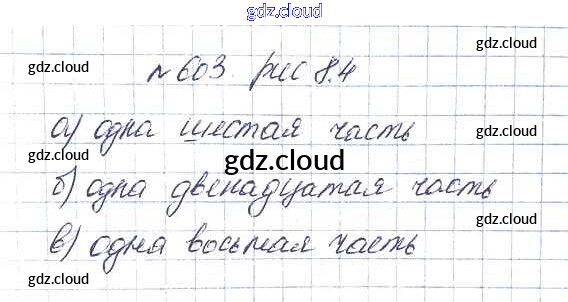 gdz.cloud
gdz.cloud
gdz.cloud
№ 603. рис 8.4
а) одна шестая часть
gdz.cloud
gdz.cloud
gdz.cloud
б) одна двенадцатая часть
в) одна восьмая часть
gdz.cloud
gdz.cloud